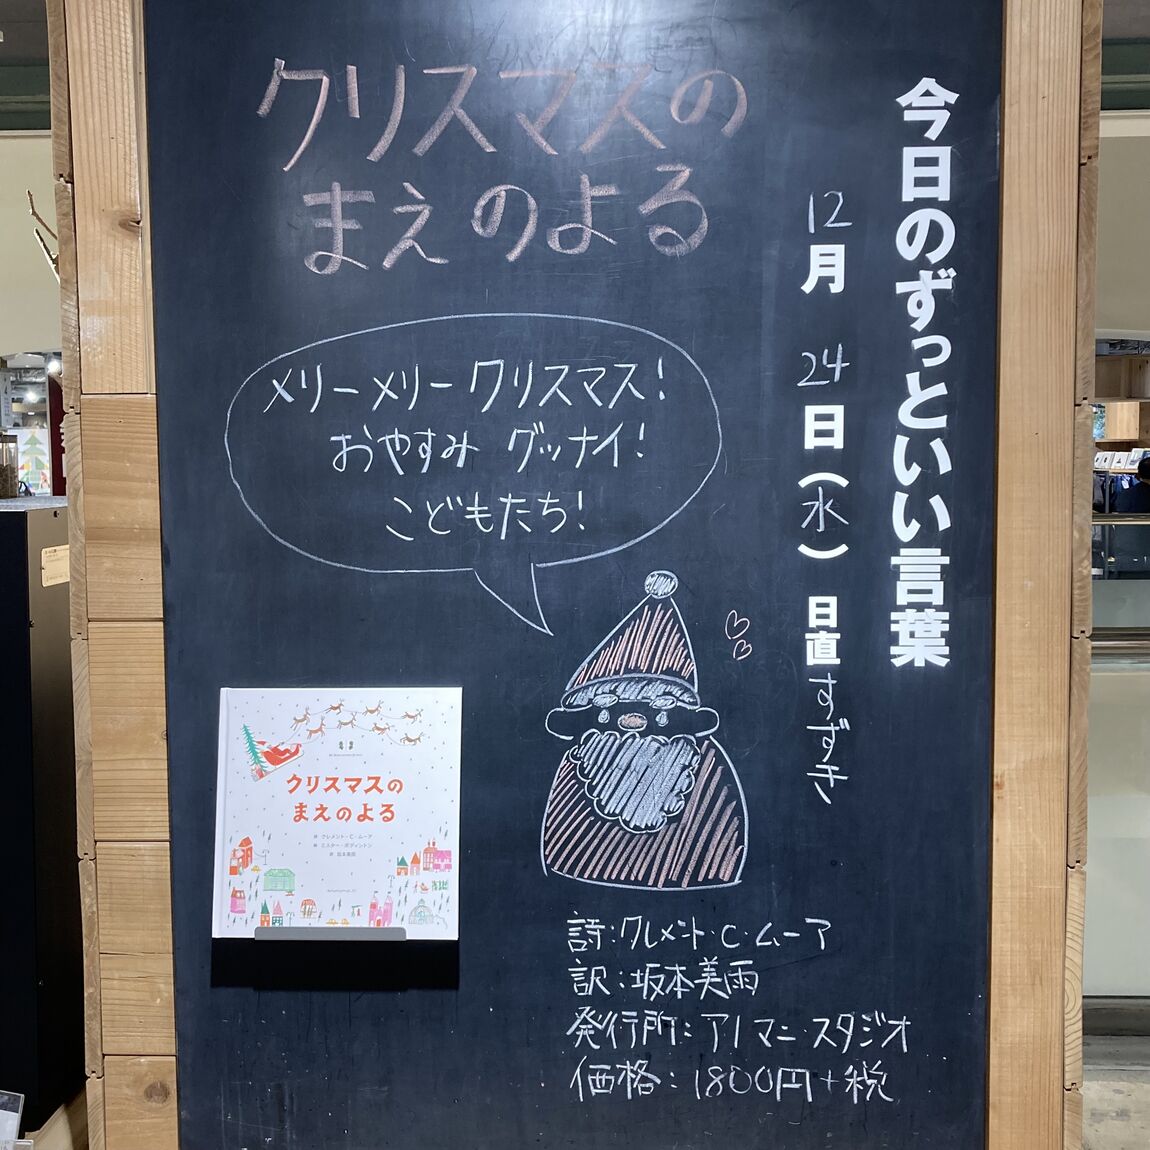 今日のずっといい言葉
12月24日(水) 日直 すずき
クリスマスの
まえのよる
メリーメリークリスマス!
おやすみ グッナイ!
こどもたち!
クリスマスの
まえのよる
詩 クレメント・C・ムーア
絵 ミスター・ボディントン
訳 坂本美雨
詩:クレメント・C・ムーア
訳:坂本美雨
発行所:アノマニ・スタジオ
価格:1800円+税